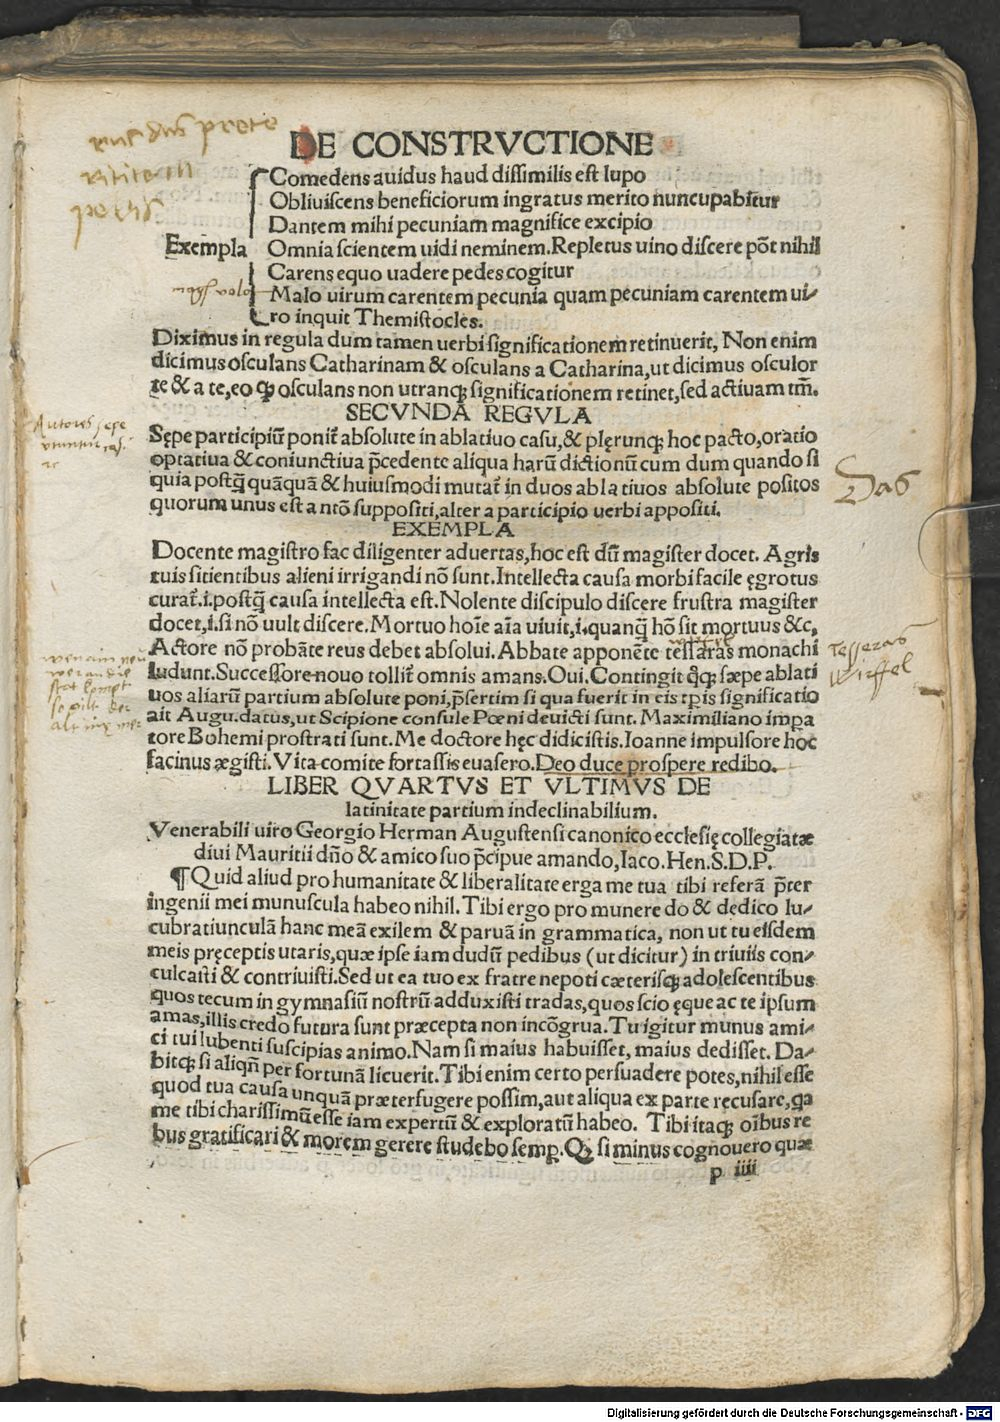 DE CONSTRVCTIONE
Comedens auidus haud dissimilis est lupo
Obliuiscens beneficiorum ingratus merito nuncupabitur
Dantem mihi pecuniam magnifice excipio
Exempla Omnia scientem uidi neminem. Repletus uino discere põt nihil
Carens equo uadere pedes cogitur
volo
Malo uirum carentem pecunia quam pecuniam carentem ui⸗
ro inquit Themistocles.
Diximus in regula dum tamen uerbi significationem retinuerit, Non enim
dicimus osculans Catharinam & osculans a Catharina, ut dicimus osculor
te & a te, eo ꝙ osculans non utranqꝫ significationem retinet, sed actiuam tm̃.
SECVNDA REGVLA
Autores sepe
Sępe participiũ ponit̃ absolute in ablatiuo casu, & plęrunqꝫ hoc pacto, oratio
optatiua & coniunctiua p̃cedente aliqua harũ dictionũ cum dum quando si
quia postq̃ quãquã & huiusmodi mutat̃ in duos ablatiuos absolute positos
Das
quorum unus est a ntõ suppositi, alter a participio uerbi appositi.
EXEMPLA
Docente magistro fac diligenter aduertas, hoc est dũ magister docet. Agris
tuis sitientibus alieni irrigandi nõ sunt. Intellecta causa morbi facile ęgrotus
curat̃.i. postq̃ causa intellecta est. Nolente discipulo discere frustra magister
docet, i. si nõ uult discere. Mortuo hoĩe aĩa uiuit, i. quanq̃ hõ sit mortuus &c,
Actore nõ probãte reus debet absolui. Abbate apponẽte tessaras monachi
Tesseras
Wirffel
ludunt. Successore nouo tollit̃ omnis amans. Oui. Contingit q̃qꝫ sæpe ablati
uos aliarũ partium absolute poni, p̃sertim si qua fuerit in eis tp̃is significatio
ait Augu. datus, ut Scipione consule Pœni deuicti sunt. Maximiliano impa
tore Bohemi prostrati sunt. Me doctore hęc didicistis. Ioanne impulsore hoc
facinus ægisti. Vita comite fortassis euasero. Deo duce prospere redibo.
LIBER QVARTVS ET VLTIMVS DE
latinitate partium indeclinabilium.
Venerabili uiro Georgio Herman Augustensi canonico ecclesię collegiatæ
diui Mauritii dño & amico suo p̃cipue amando, Iaco. Hen. S. D. P.
¶ Quid aliud pro humanitate & liberalitate erga me tua tibi referã p̃ter
ingenii mei munuscula habeo nihil. Tibi ergo pro munere do & dedico lu⸗
cubratiunculã hanc meã exilem & paruã in grammatica, non ut tu eisdem
meis pręceptis utaris, quæ ipse iam dudũ pedibus (ut dicitur) in triuiis con⸗
culcasti & contriuisti. Sed ut ea tuo ex fratre nepoti cæterisqꝫ adolescentibus
quos tecum in gymnasiũ nostrũ adduxisti tradas, quos scio ęque ac te ipsum
amas, illis credo futura sunt præcepta non incõgrua. Tu igitur munus ami⸗
ci tui lubenti suscipias animo. Nam si maius habuisset, maius dedisset. Da⸗
bitqꝫ si aliqñ per fortunã licuerit. Tibi enim certo persuadere potes, nihil esse
quod tua causa unquã præterfugere possim, aut aliqua ex parte recusare, qa
me tibi charissimũ esse iam expertũ & exploratũ habeo. Tibi itaqꝫ oĩbus re
bus gratificari & morem gerere studebo semꝑ. Qꝫ si minus cognouero quæ
p iiii
Digitalisierung gefördert durch die Deutsche Forschungsgemeinschaft - DFG